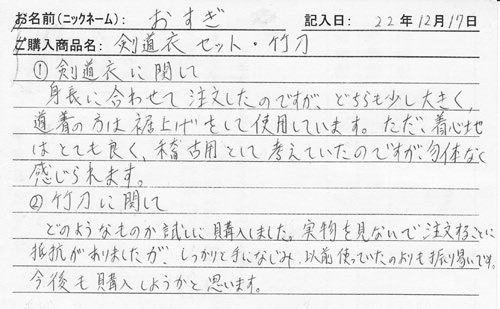 お名前(ニックネーム): おすぎ 記入日: 22年12月17日
ご購入商品名: 剣道衣セット・竹刀
①剣道衣に関して
身長に合わせて注文したのですが、どちらも少し大きく、
道着の方は裾上げをして使用しています。ただ、着心地
はとても良く、稽古用として考えていたのですが勿体なく
感じられます。
②竹刀に関して
どのようなものか試しに購入しました。実物を見ないで注文することに
抵抗がありましたが、しっかりと手になじみ、以前使っていたのよりも振り易いです。
今後も購入しようかと思います。